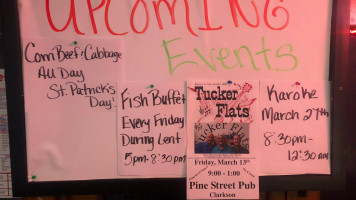 UPCOMING
Events
Corn Beef & Cabbage
All Day
St. Patrick's
Day!
Fish Buffet
Every Friday
During Lent
5pm - 8:30pm
Tucker
Flats
Tucker Flats
Friday, March 13th
9:00 - 1:00
Pine Street Pub
Clarkson
Karoke
March 27th
8:30pm-
12:30am